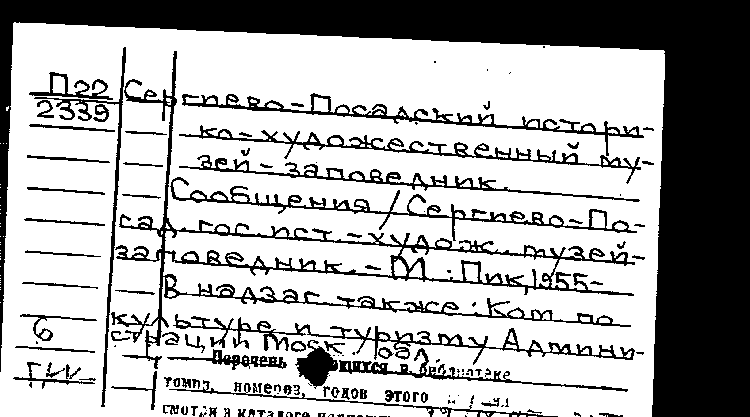 П22 Сергиево-Посадский истори-
2339
ко-художественный му-
зей-заповедник.
Сообщения / Сергиево-По-
сад. гос. ист.-худож. музей-
заповедник. - М.: Пик, 1955-
В надзаг. также: Ком. по
6 культуре и туризму Админи-
страции Моск. обл.
Перечень в библиотеке
томов, номеров, годов этого
смотри в каталоге